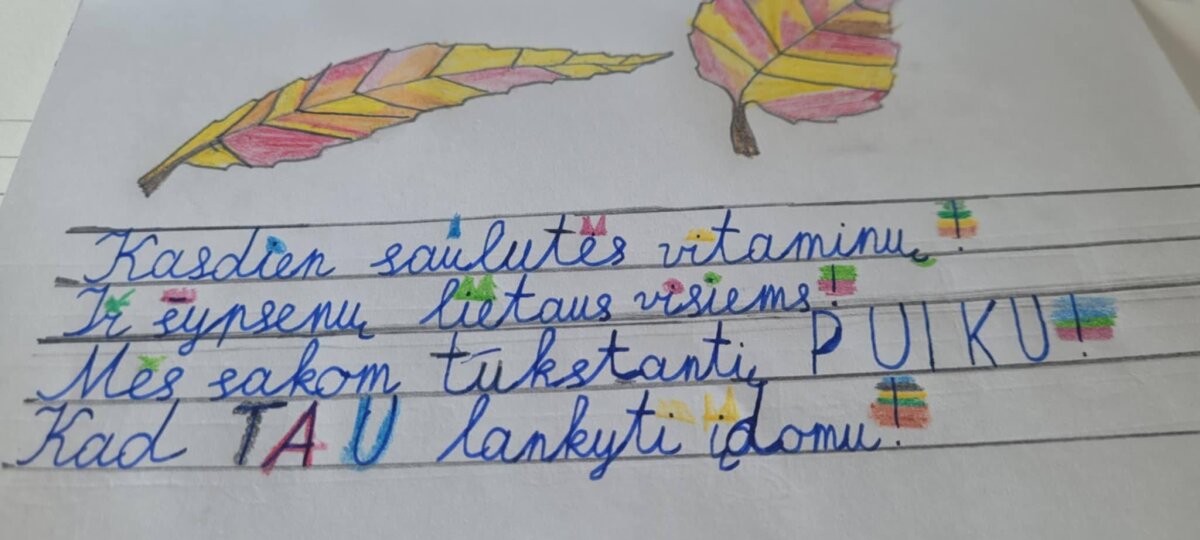 Kasdien saulutės vitaminų!
Ir šypsenų lietaus visiems!
Mes sakom tūkstantį PUIKU!
Kad TAU lankyti įdomu!